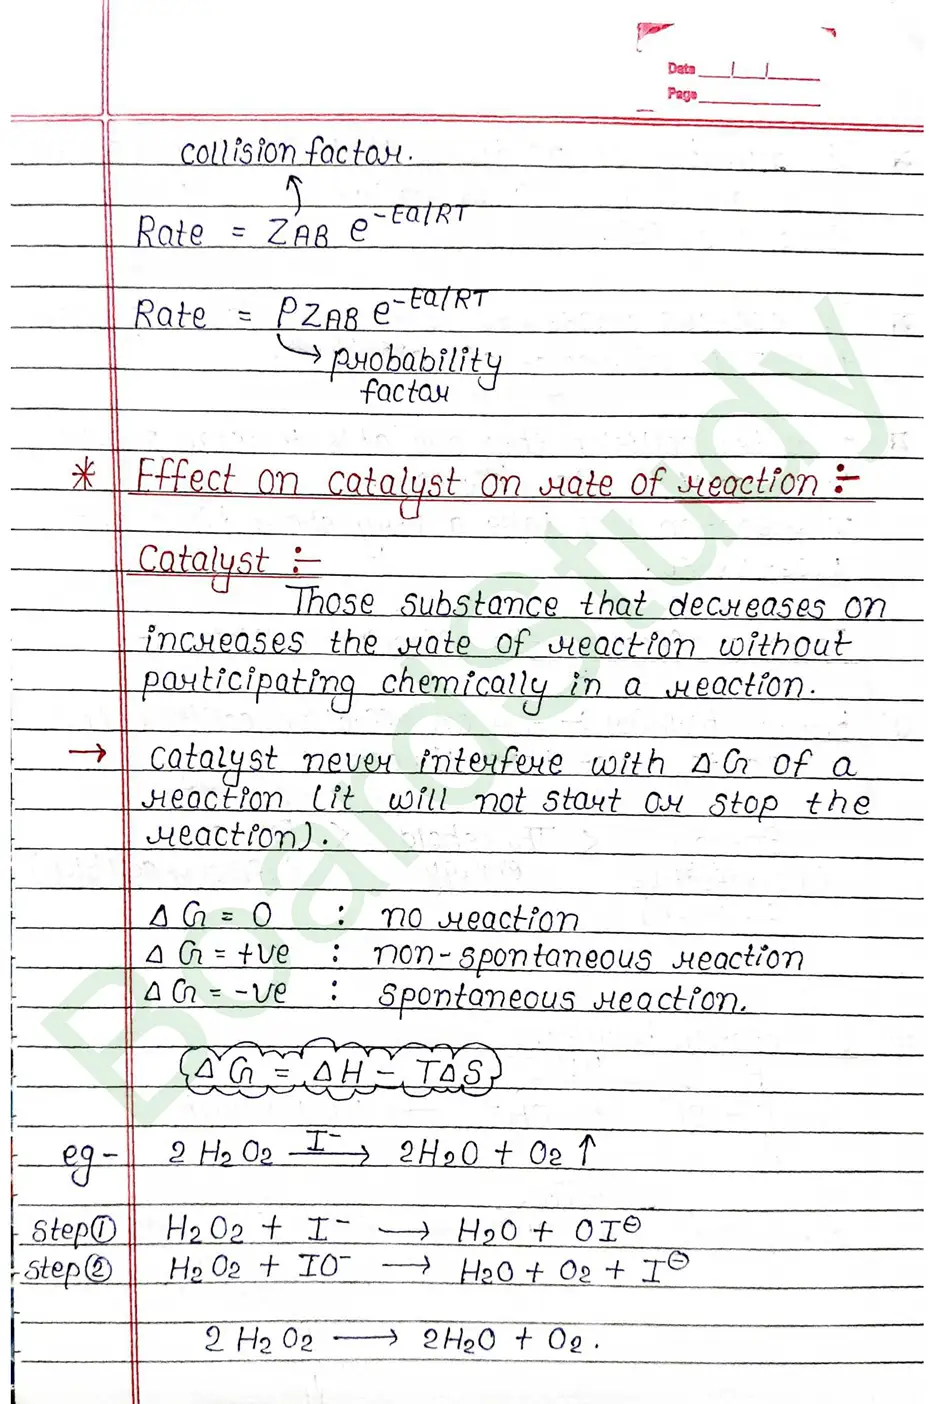 Date
Page
collision factor.
Rate = Z_AB e^-Ea/RT
Rate = PZ_AB e^-Ea/RT
probability
factor
* Effect on catalyst on rate of reaction :-
Catalyst :-
Those substance that decreases or
increases the rate of reaction without
participating chemically in a reaction.
→ catalyst never interfere with ΔG of a
reaction (it will not start or stop the
reaction).
ΔG = 0 : no reaction
ΔG = +ve : non-spontaneous reaction
ΔG = -ve : spontaneous reaction.
ΔG = ΔH - TΔS
eg- 2H₂O₂ —I⁻→ 2H₂O + O₂↑
Step① H₂O₂ + I⁻ → H₂O + OI⊖
Step② H₂O₂ + IO⁻ → H₂O + O₂ + I⊖
2H₂O₂ → 2H₂O + O₂.
BoardStudy